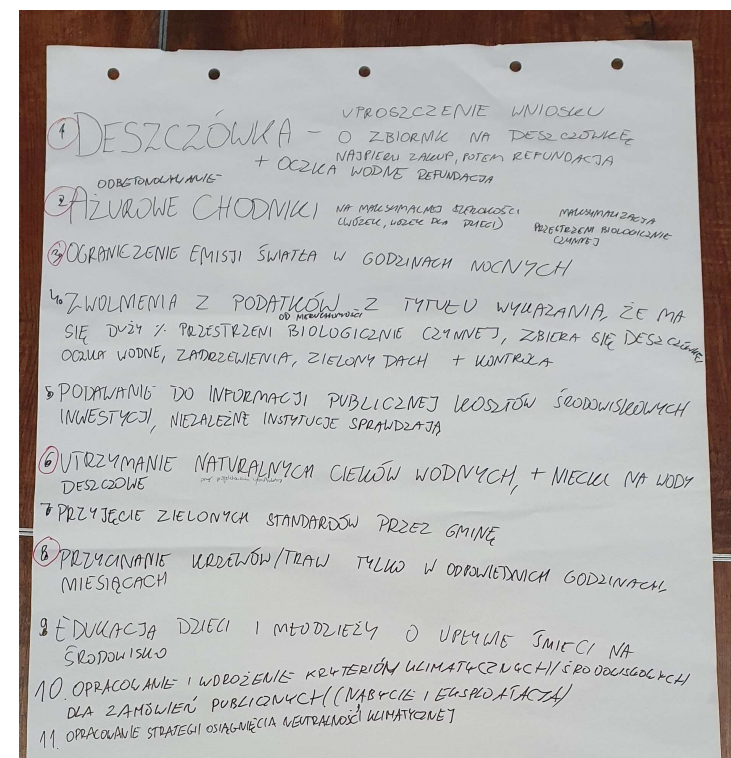 UPROSZCZENIE WNIOSKU
1 DESZCZÓWKA – O ZBIORNIK NA DESZCZÓWKĘ
NAJPIERW ZAKUP, POTEM REFUNDACJA
+ OCZKA WODNE REFUNDACJA
ODBETONOWYWANIE
2. AŻUROWE CHODNIKI NA MAKSYMALNEJ SZEROKOŚCI MAKSYMALIZACJA
(WÓZEK, WÓZEK DLA DZIECI) PRZESTRZENI BIOLOGICZNIE
CZYNNEJ
3. OGRANICZENIE EMISJI ŚWIATŁA W GODZINACH NOCNYCH
4. ZWOLNIENIA Z PODATKÓW Z TYTUŁU WYKAZANIA, ŻE MA
OD NIERUCHOMOŚCI
SIĘ DUŻY % PRZESTRZENI BIOLOGICZNIE CZYNNEJ, ZBIERA SIĘ DESZCZÓWKĘ
OCZKA WODNE, ZADRZEWIENIA, ZIELONY DACH + KONTROLA
5 PODAWANIE DO INFORMACJI PUBLICZNEJ KOSZTÓW ŚRODOWISKOWYCH
INWESTYCJI, NIEZALEŻNE INSTYTUCJE SPRAWDZAJĄ
6 UTRZYMANIE NATURALNYCH CIEKÓW WODNYCH, + NIECKI NA WODY
DESZCZOWE
7 PRZYJĘCIE ZIELONYCH STANDARDÓW PRZEZ GMINĘ
8. PRZYCINANIE KRZEWÓW/TRAW TYLKO W ODPOWIEDNICH GODZINACH,
MIESIĄCACH
9. EDUKACJA DZIECI I MŁODZIEŻY O WPŁYWIE ŚMIECI NA
ŚRODOWISKO
10. OPRACOWANIE I WDROŻENIE KRYTERIÓW KLIMATYCZNYCH/ŚRODOWISKOWYCH
DLA ZAMÓWIEŃ PUBLICZNYCH ((NABYCIE I EKSPLOATACJA)
11. OPRACOWANIE STRATEGII OSIĄGNIĘCIA NEUTRALNOŚCI KLIMATYCZNEJ